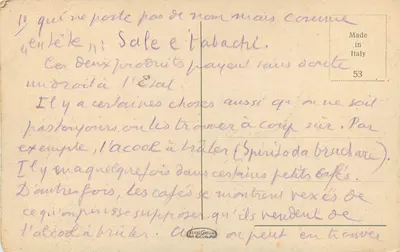 10 qui ne porte pas de nom mais comme
"entête": Sale e tabachi.
Ces deux produits payent sans doute
un droit à l'Etat.
Il y a certaines choses aussi qu'on ne sait
pas toujours où les trouver à coup sûr. Par
exemple, l'alcool à brûler (Spirito da bruciare).
Il y en a quelquefois dans certains petits cafés.
D'autres fois, les cafés se montrent vexés de
ce qu'on puisse supposer qu'ils vendent de
l'alcool à brûler. on peut en trouver
Made
in
Italy
53